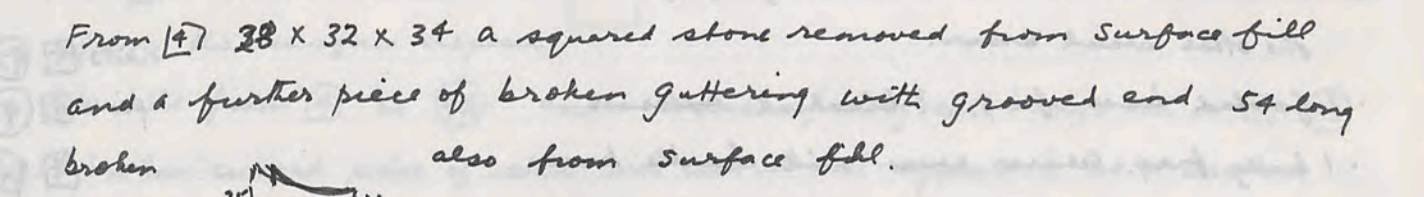 From [4] 38 x 32 x 34 a squared stone removed from surface fill
and a further piece of broken guttering with grooved end 54 long
broken also from surface fill.